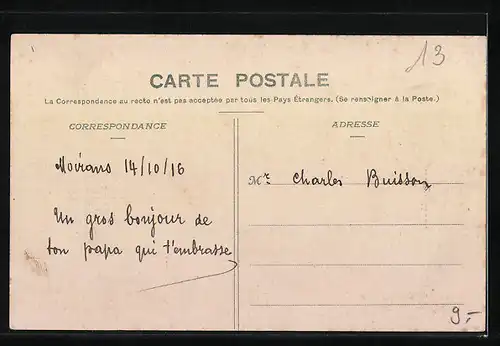 13
CARTE POSTALE
La Correspondance au recto n'est pas acceptée par tous les Pays Étrangers. (Se renseigner à la Poste.)
CORRESPONDANCE
ADRESSE
Moirans 14/10/16
Mr Charles Buisson
Un gros bonjour de
ton papa qui t'embrasse
9.-